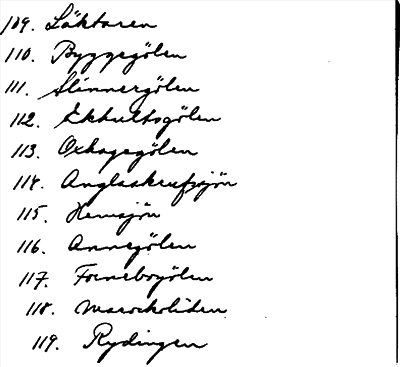 109. Läktaren
110. Byggegölen
111. Slinnergölen
112. Ekhultsgölen
113. Oxhagegölen
114.
115. Hemsjön
116. Annegölen
117.
118.
119. Rydingen